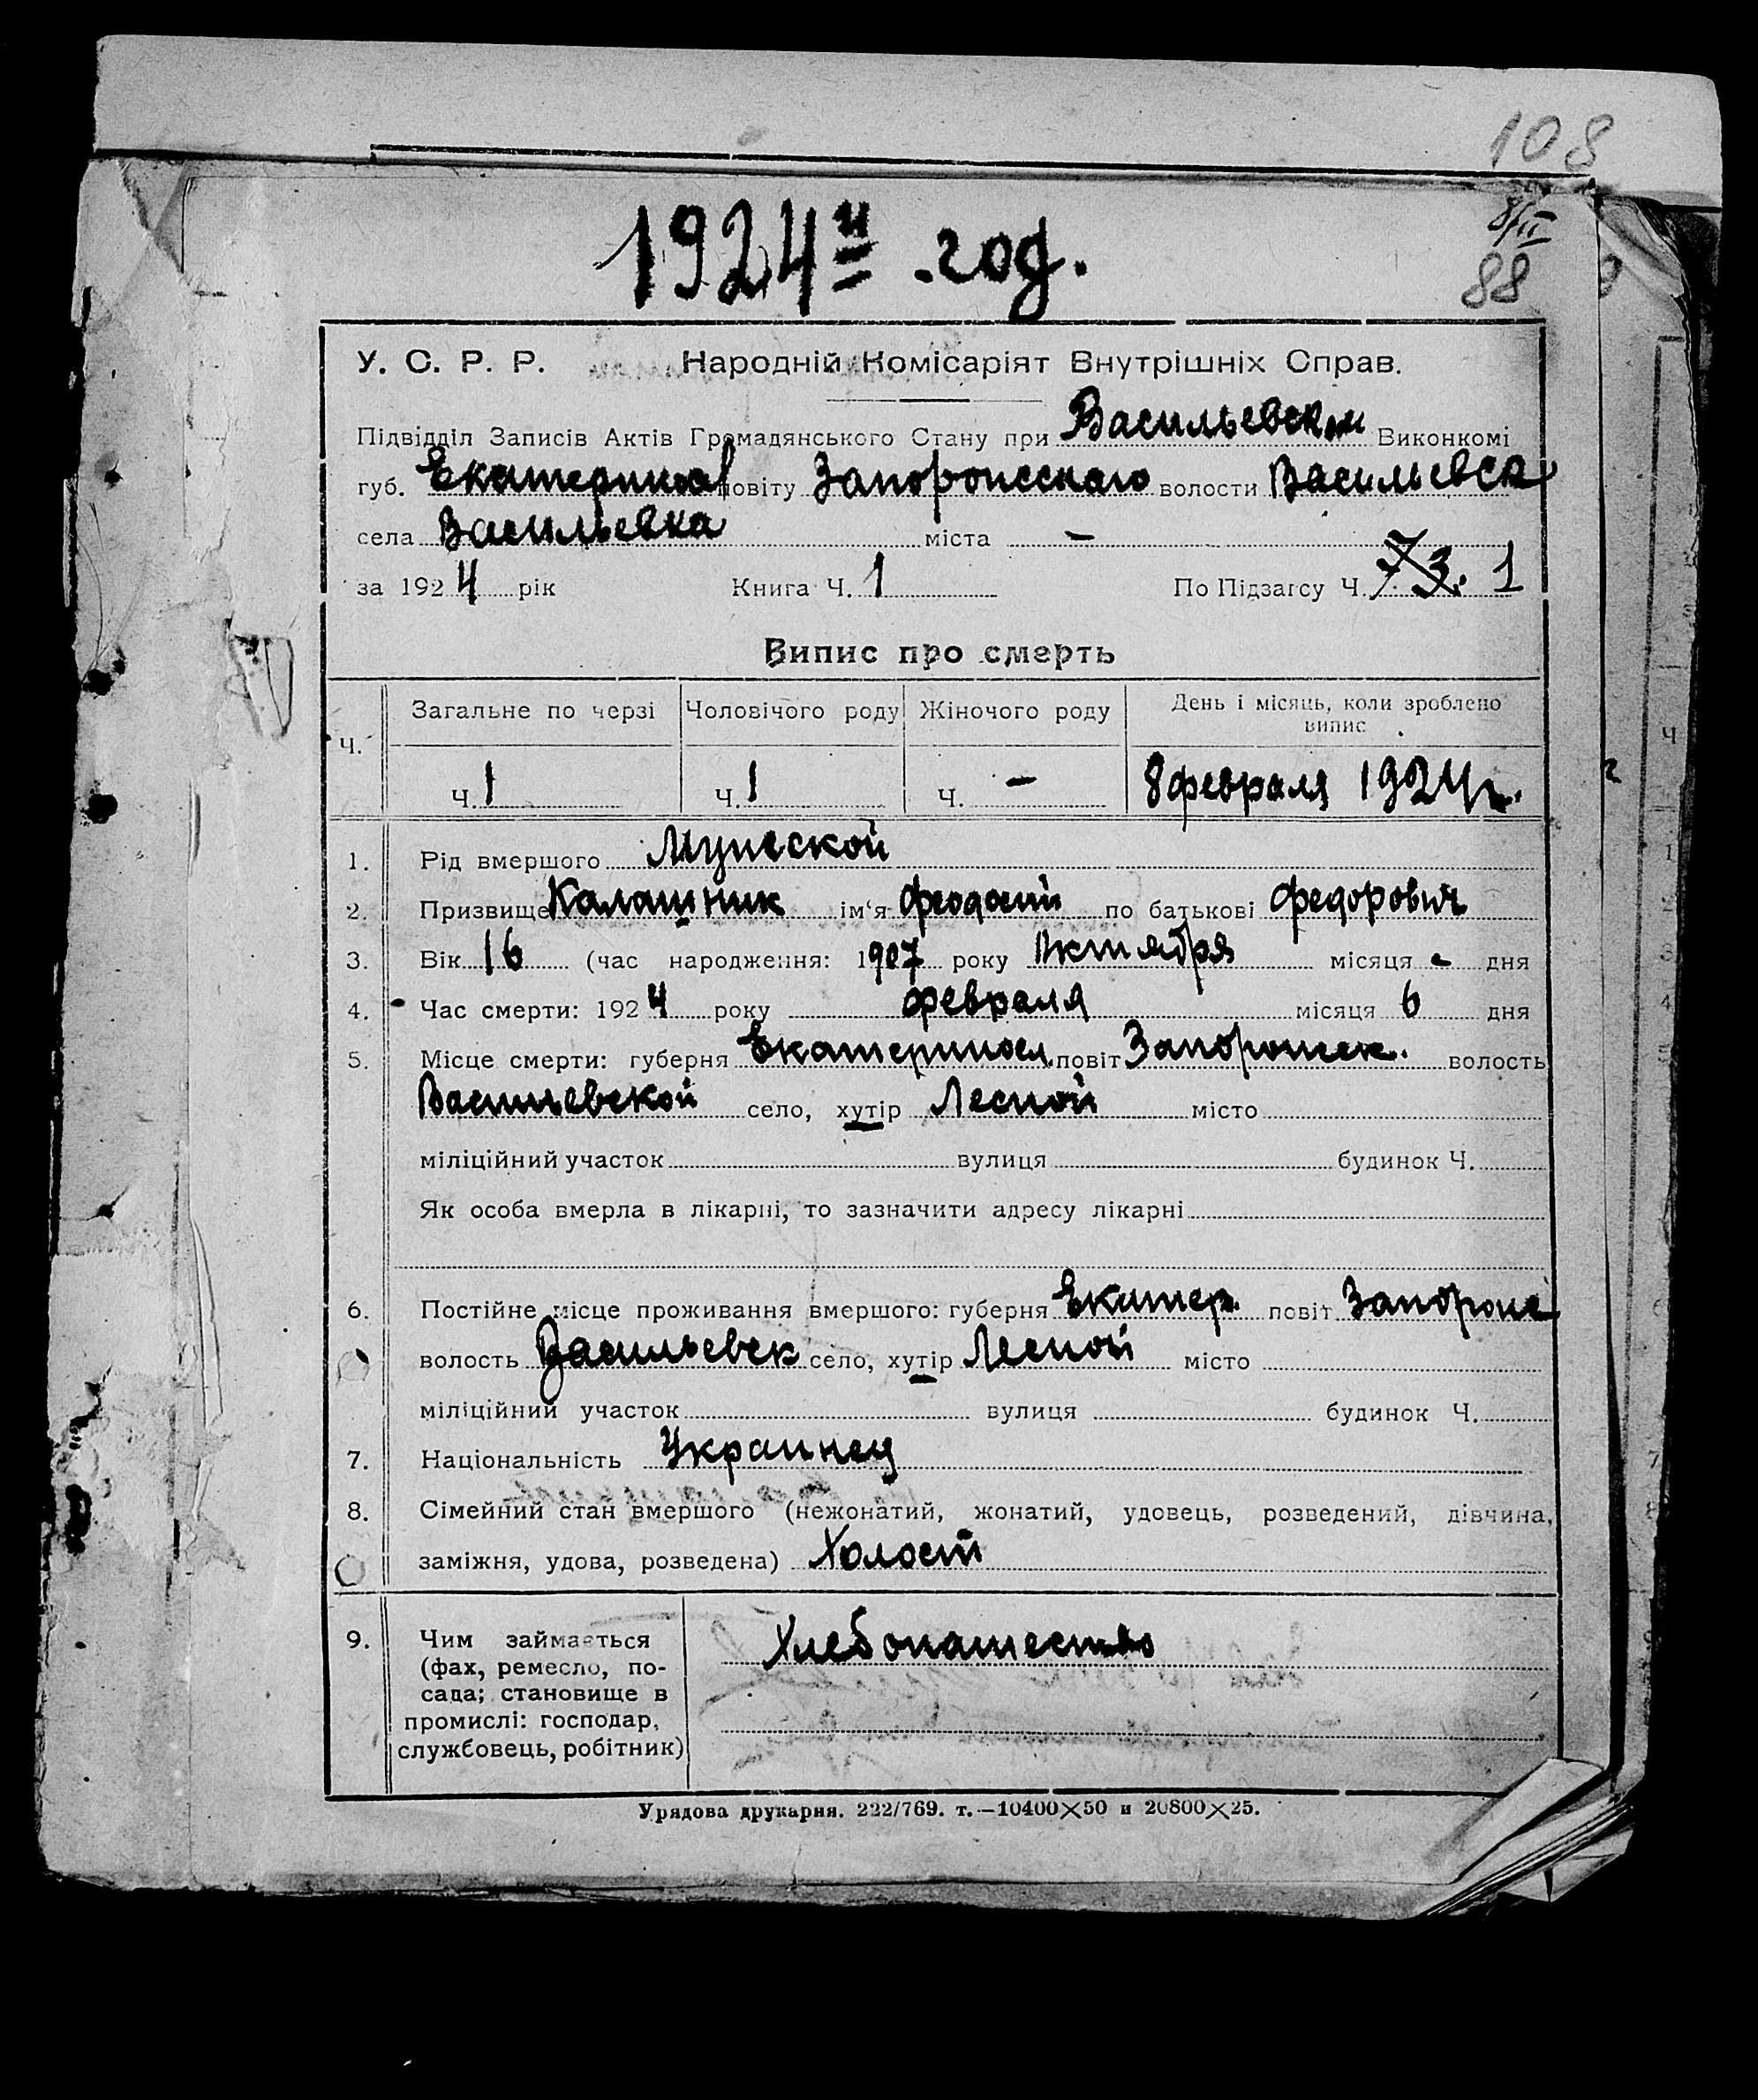 108
8/II
88
1924й год.
У. С. Р. Р. Народній Комісаріят Внутрішніх Справ.
Підвідділ Записів Актів Громадянського Стану при Васильевском Виконкомі
губ. Екатеринослав повіту Запорожскаго волости Васильевск
села Васильевка міста —
за 1924 рік Книга Ч. 1 По Підзагсу Ч. 73. 1
Випис про смерть
Ч. Загальне по черзі Чоловічого роду Жіночого роду День і місяць, коли зроблено випис
Ч. 1 Ч. 1 Ч. — 8 февраля 1924 г.
1. Рід вмершого Мужеской
2. Призвище Калашник ім‘я Феодосий по батькові Федорович
3. Вік 16 (час народження: 1907 року Октября місяця - дня
4. Час смерти: 1924 року февраля місяця 6 дня
5. Місце смерти: губерня Екатериносл повіт Запорожск. волость
Васильевской село, хутір Лесной місто
міліційний участок вулиця будинок Ч.
Як особа вмерла в лікарні, то зазначити адресу лікарні
6. Постійне місце проживання вмершого: губерня Екатер. повіт Запорож
волость Васильевск село, хутір Лесной місто
міліційний участок вулиця будинок Ч.
7. Національність Украинец
8. Сімейний стан вмершого (нежонатий, жонатий, удовець, розведений, дівчина,
заміжня, удова, розведена) Холост
9. Чим займається Хлебопашество
(фах, ремесло, по-
сада; становище в
промислі: господар,
службовець, робітник)
Урядова друкарня. 222/769. т.—10400×50 и 20800×25.